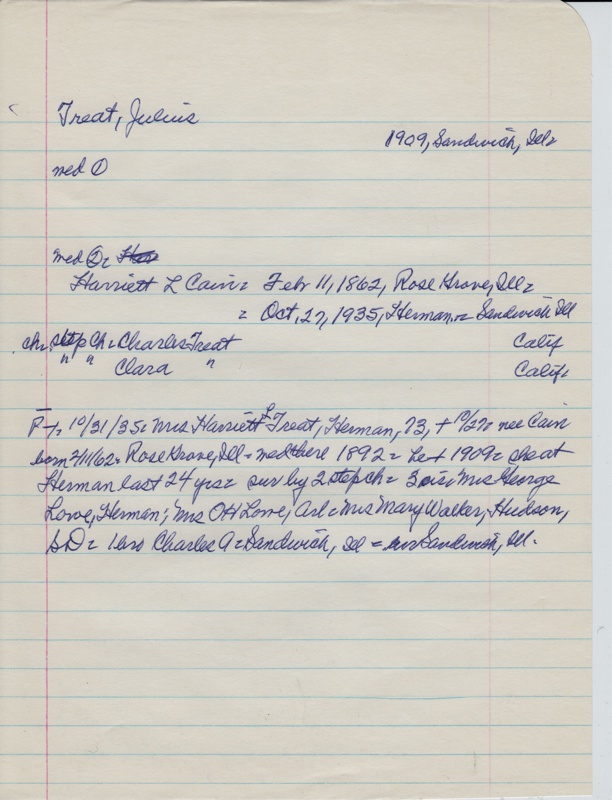 Treat, Julius
1909, Sandwich, Ill=
med ①
med ②=
Harriett L Cain= Feb 11, 1862, Rose Grove, Ill=
= Oct, 27, 1935, Herman = Sandwich Ill
ch= step Ch= Charles Treat Calif
" " Clara " Calif,
10/31/35= Mrs Harriett L Treat, Herman, 73, + 10/27= nee Cain
born 2/11/62= Rose Grove, Ill= med there 1892= he + 1909= she at
Herman last 24 yrs= sur by 2 step ch= 3 sis= Mrs George
Lowe, Herman; Mrs OH Lowe, Arl= Mrs Mary Walker, Hudson,
S.D= 1 bro Charles A= Sandwich, Ill = Sandwich, Ill.